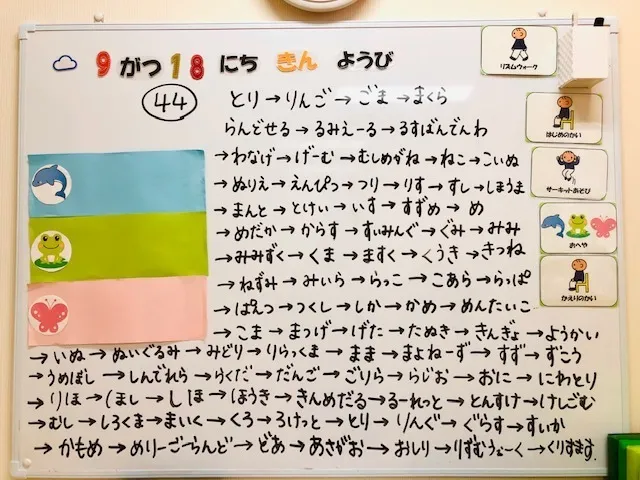 9 がつ 18 にち きん ようび
44
とり→りんご→ごま→まくら
らんどせる→るみえーる→るすばんでんわ
→わなげ→げーむ→むしめがね→ねこ→こいぬ
→ぬりえ→えんぴつ→つり→りす→すし→しまうま
→まんと→とけい→いす→すずめ→め
→めだか→からす→すいみんぐ→ぐみ→みみ
→みみずく→くま→ますく→くうき→きつね
→ねずみ→みいら→らっこ→こあら→らっぱ
→ぱえつ→つくし→しか→かめ→めんたいこ
→こま→まつげ→げた→たぬき→きんぎょ→ようかい
→いぬ→ぬいぐるみ→みどり→りらっくま→まま→まよねーず→すず→ずこう
→うめぼし→しんでれら→らくだ→だんご→ごりら→らじお→おに→にわとり
→りほ→ほし→しほ→ほうき→きんめだる→るーれっと→とんすけ→けしごむ
→むし→しろくま→まいく→くろ→ろけっと→とり→りんぐ→ぐらす→すいか
→かもめ→めりーごーらんど→どあ→あさがお→おしり→りずむうぉーく→くりすます
リズムウォーク
はじめのかい
サーキットあそび
おへや
かえりのかい